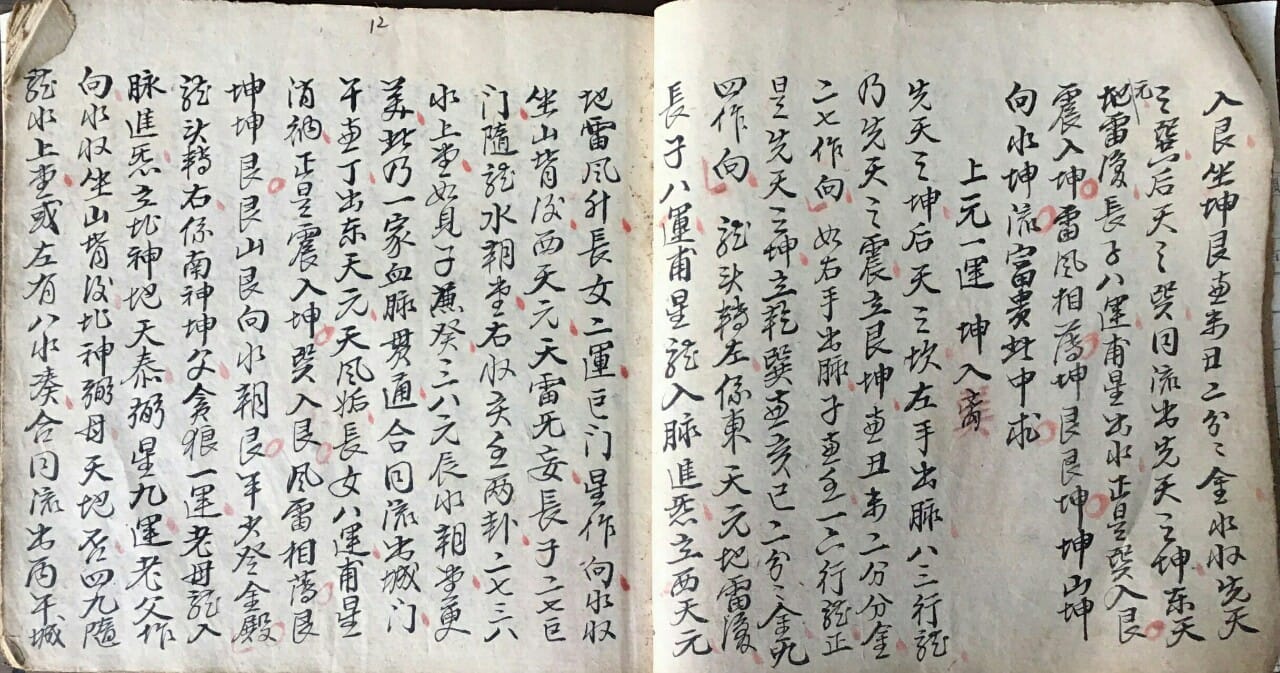 入艮坐坤艮兼未丑二分之金水收先天
之巽后天之巽同流出先天之坤东天
元
地雷復長子八運甫星出水正是巽入艮
震入坤雷風相薄坤艮艮坤坤山坤
向水坤流富贵此中求
上元一運 坤入离
先天之坤后天之坎左手出脉八三行龍
乃先天之震立艮坤兼丑未二分分金
二七作向如右手出脉子兼壬一六行龍正
是先天之坤立乾巽兼亥巳二分之金九
四作向 龍头轉左係東天元地雷復
長子八運甫星龍入脉進炁立西天元
12
地雷風升長女二運巨门星作向水收
坐山背后西天元天雷无妄長子二七巨
门隨龍水朝堂右收亥壬两卦二七三六
水上堂如見子兼癸一六元辰水朝堂更
美此乃一家血脉貫通合同流出城门
午兼丁出东天元天風姤長女八運甫星
消納正是震入坤巽入艮風雷相薄艮
坤坤艮艮山艮向水朝艮年少登金殿
龍头轉右係南神坤父貪狼一運老母龍入
脉進炁立北神地天泰弼星九運老父作
向水收坐山背後北神弼母天地否四九隨
龍水上堂或左有八水湊合同流出丙午城